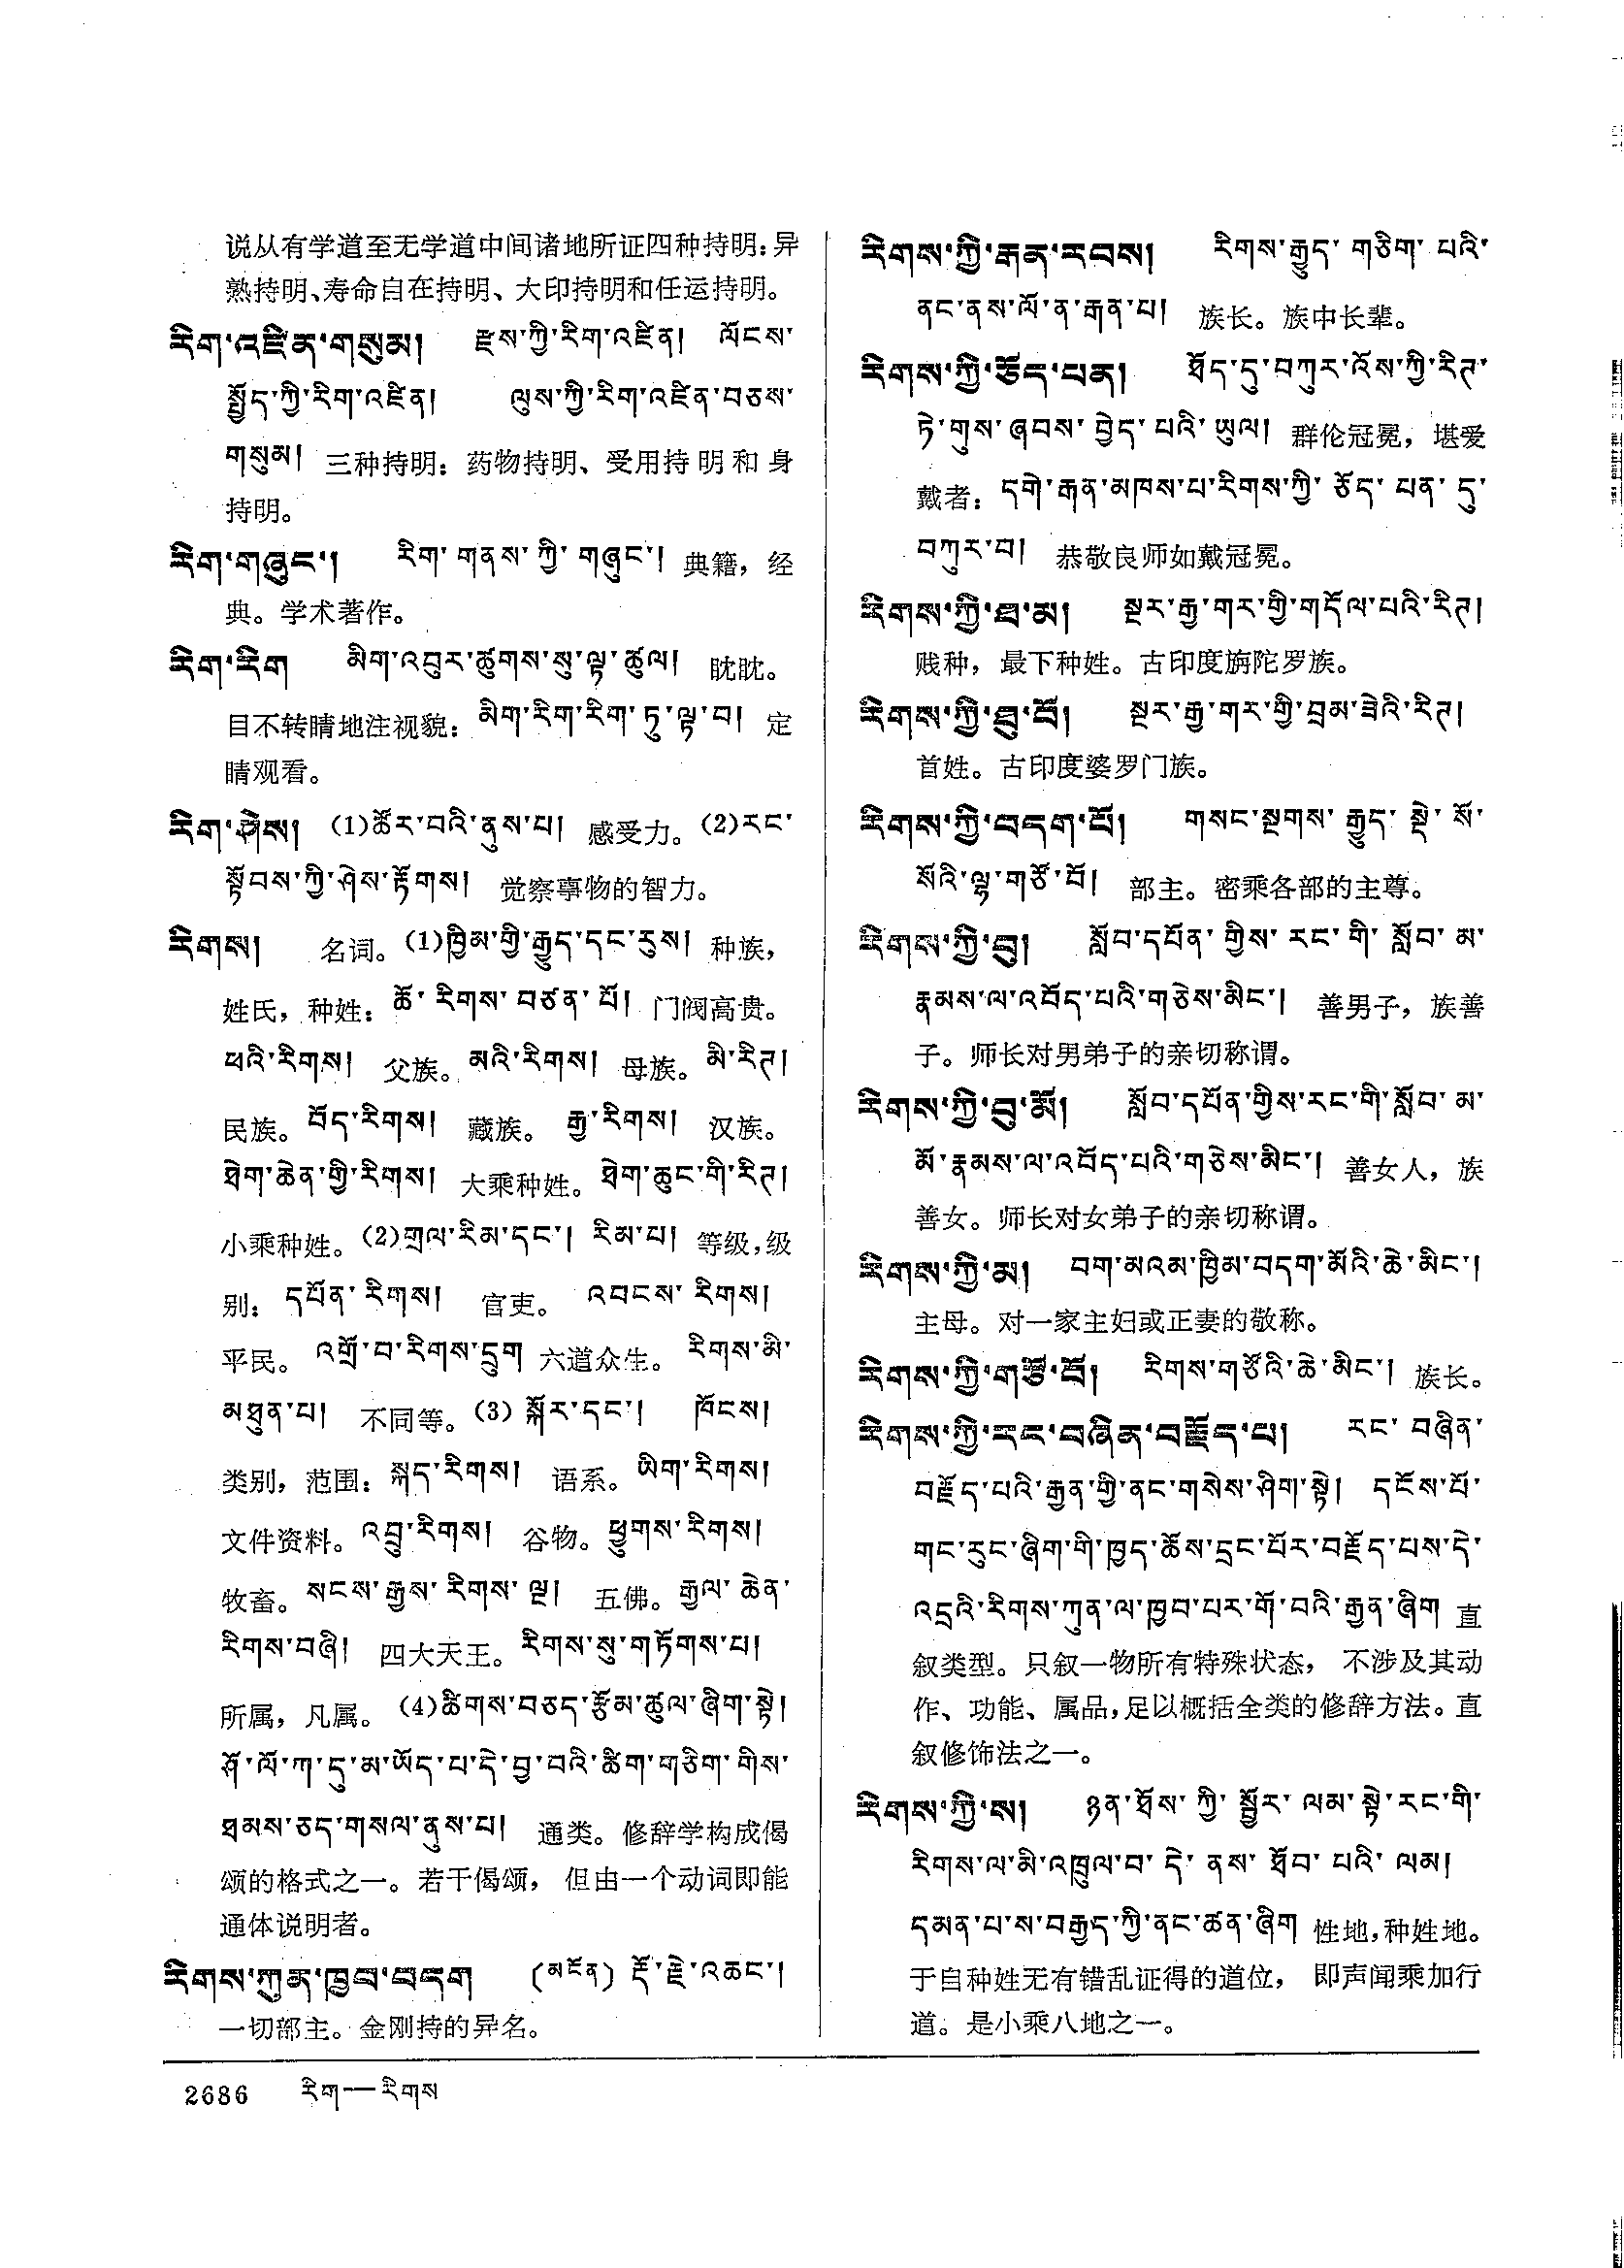 说从有学道至无学道中间诸地所证四种持明:异
熟持明、寿命自在持明、大印持明和任运持明。
རིག་འཛིན་གསུམ། རྫས་ཀྱི་རིག་འཛིན། ལོངས་
སྤྱོད་ཀྱི་རིག་འཛིན། ལུས་ཀྱི་རིག་འཛིན་བཅས་
གསུམ། 三种持明：药物持明、受用持明和身
持明。
རིག་གཞུང་། རིག་གནས་ཀྱི་གཞུང་། 典籍，经
典。学术著作。
རིག་རིག མིག་འབུར་ཚུགས་སུ་ལྟ་ཚུལ། 眈眈。
目不转睛地注视貌：མིག་རིག་རིག་ཏུ་ལྟ་བ། 定
睛观看。
རིག་ཤེས། (1)ཚོར་བའི་ནུས་པ། 感受力。(2)རང་
སྟོབས་ཀྱི་ཤེས་རྟོགས། 觉察事物的智力。
རིགས། 名词。(1)ཁྱིམ་གྱི་རྒྱུད་དང་རུས། 种族，
姓氏，种姓：ཆོ་རིགས་བཙན་པོ། 门阀高贵。
ཕའི་རིགས། 父族。མའི་རིགས། 母族。མི་རིཊ།
民族。བོད་རིགས། 藏族。རྒྱ་རིགས། 汉族。
ཐེག་ཆེན་གྱི་རིགས། 大乘种姓。ཐེག་ཆུང་གི་རིཊ།
小乘种姓。(2)གྲལ་རིམ་དང་། རིམ་པ། 等级,级
别：དཔོན་རིགས། 官吏。འབངས་རིགས།
平民。འགྲོ་བ་རིགས་དྲུག 六道众生。རིགས་མི་
མཐུན་པ། 不同等。(3)སྐོར་དང་། ཁོངས།
类别，范围：སྐད་རིགས། 语系。ཡིག་རིགས།
文件资料。འབྲུ་རིགས། 谷物。ཕྱུགས་རིགས།
牧畜。སངས་རྒྱས་རིགས་ལྔ། 五佛。རྒྱལ་ཆེན་
རིགས་བཞི། 四大天王。རིགས་སུ་གཏོགས་པ།
所属，凡属。(4)ཚིགས་བཅད་རྩོམ་ཚུལ་ཞིག་སྟེ།
ཤོ་ལོ་ཀ་དུ་མ་ཡོད་པ་དེ་བྱ་བའི་ཚིག་གཅིག་གིས་
ཐམས་ཅད་གསལ་ནུས་པ། 通类。修辞学构成偈
颂的格式之一。若干偈颂，但由一个动词即能
通体说明者。
རིགས་ཀུན་ཁྱབ་བདག (མངོན) རྡོ་རྗེ་འཆང་།
一切部主。金刚持的异名。
རིགས་ཀྱི་རྒན་རབས། རིགས་རྒྱུད་གཅིག་པའི་
ནང་ནས་ལོ་ན་རྒན་པ། 族长。族中长辈。
རིགས་ཀྱི་ཅོད་པན། ཐོད་དུ་བཀུར་འོས་ཀྱི་རིཊ་
ཏེ་གུས་ཞབས་བྱེད་པའི་ཡུལ། 群伦冠冕，堪爱
戴者：དགེ་རྒན་མཁས་པ་རིགས་ཀྱི་ཅོད་པན་དུ་
བཀུར་བ། 恭敬良师如戴冠冕。
རིགས་ཀྱི་ཐ་མ། སྔར་རྒྱ་གར་གྱི་གདོལ་པའི་རིཊ།
贱种，最下种姓。古印度旃陀罗族。
རིགས་ཀྱི་ཐུ་བོ། སྔར་རྒྱ་གར་གྱི་བྲམ་ཟེའི་རིཊ།
首姓。古印度婆罗门族。
རིགས་ཀྱི་བདག་པོ། གསང་སྔགས་རྒྱུད་སྡེ་སོ་
སོའི་ལྷ་གཙོ་བོ། 部主。密乘各部的主尊。
རིགས་ཀྱི་བུ། སློབ་དཔོན་གྱིས་རང་གི་སློབ་མ་
རྣམས་ལ་འབོད་པའི་གཅེས་མིང་། 善男子，族善
子。师长对男弟子的亲切称谓。
རིགས་ཀྱི་བུ་མོ། སློབ་དཔོན་གྱིས་རང་གི་སློབ་མ་
མོ་རྣམས་ལ་འབོད་པའི་གཅེས་མིང་། 善女人，族
善女。师长对女弟子的亲切称谓。
རིགས་ཀྱི་མ། བག་མའམ་ཁྱིམ་བདག་མོའི་ཆེ་མིང་།
主母。对一家主妇或正妻的敬称。
རིགས་ཀྱི་གཙོ་བོ། རིགས་གཙོའི་ཆེ་མིང་། 族长。
རིགས་ཀྱི་རང་བཞིན་བརྗོད་པ། རང་བཞིན་
བརྗོད་པའི་རྒྱན་གྱི་ནང་གསེས་ཤིག་སྟེ། དངོས་པོ་
གང་རུང་ཞིག་གི་ཁྱད་ཆོས་དྲང་པོར་བརྗོད་པས་དེ་
འདྲའི་རིགས་ཀུན་ལ་ཁྱབ་པར་གོ་བའི་རྒྱན་ཞིག 直
叙类型。只叙一物所有特殊状态，不涉及其动
作、功能、属品,足以概括全类的修辞方法。直
叙修饰法之一。
རིགས་ཀྱི་ས། ཉན་ཐོས་ཀྱི་སྦྱོར་ལམ་སྟེ་རང་གི་
རིགས་ལ་མི་འཁྲུལ་བ་དེ་ནས་ཐོབ་པའི་ལམ།
དམན་པ་ས་བརྒྱད་ཀྱི་ནང་ཚན་ཞིག 性地,种姓地。
于自种姓无有错乱证得的道位，即声闻乘加行
道。是小乘八地之一。
2686 རིག—རིགས